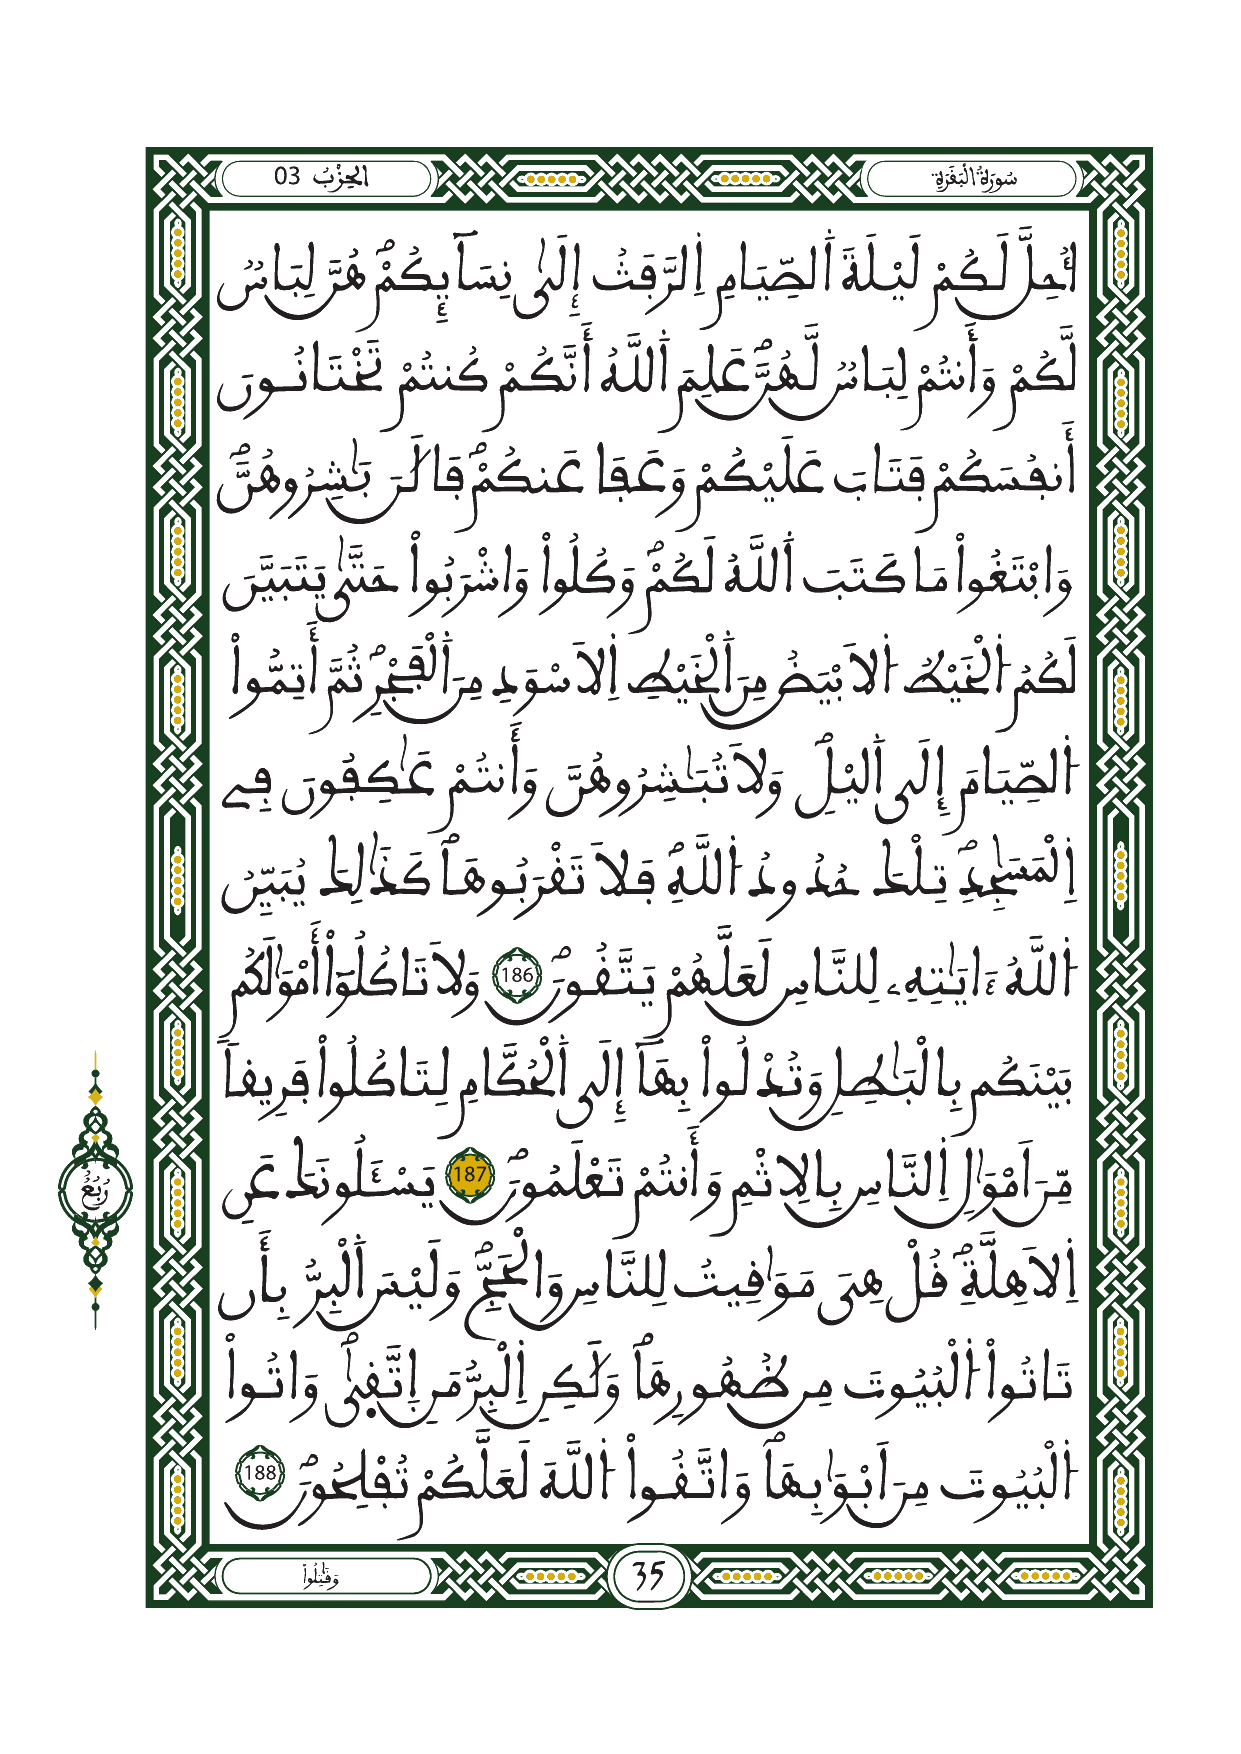 سُورَةُ الْبَقَرَةِ
الحِزْبُ 03
اُحِلَّ لَكُمْ لَيْلَةَ اَ۬لصِّيَامِ اِ۬لرَّفَثُ إِلَىٰ نِسَآئِكُمْۖ هُنَّ لِبَاسٌ
لَّكُمْ وَأَنتُمْ لِبَاسٌ لَّهُنَّۖ عَلِمَ اَ۬للَّهُ أَنَّكُمْ كُنتُمْ تَخْتَانُونَ
أَنفُسَكُمْ فَتَابَ عَلَيْكُمْ وَعَفَا عَنكُمْۖ فَالَٰنَ بَٰشِرُوهُنَّۖ
وَابْتَغُواْ مَا كَتَبَ اَ۬للَّهُ لَكُمْۖ وَكُلُواْ وَاشْرَبُواْ حَتَّىٰ يَتَبَيَّنَ
لَكُمُ اُ۬لْخَيْطُ اُ۬لَابْيَضُ مِنَ اَ۬لْخَيْطِ اِ۬لَاسْوَدِ مِنَ اَ۬لْفَجْرِۖ ثُمَّ أَتِمُّواْ
اُ۬لصِّيَامَ إِلَى اَ۬ليْلِۖ وَلَا تُبَٰشِرُوهُنَّ وَأَنتُمْ عَٰكِفُونَ فِے
اِ۬لْمَسَٰجِدِۖ تِلْكَ حُدُودُ اُ۬للَّهِۖ فَلَا تَقْرَبُوهَاۖ كَذَٰلِكَ يُبَيِّنُ
اُ۬للَّهُ ءَايَٰتِهِۦ لِلنَّاسِ لَعَلَّهُمْ يَتَّقُونَۖ 186 وَلَا تَاكُلُوٓاْ أَمْوَٰلَكُم
بَيْنَكُم بِالْبَٰطِلِ وَتُدْلُواْ بِهَآ إِلَى اَ۬لْحُكَّامِ لِتَاكُلُواْ فَرِيقاٗ
مِّنَ اَمْوَٰلِ اِ۬لنَّاسِ بِالِاثْمِ وَأَنتُمْ تَعْلَمُونَۖ 187 يَسْـَٔلُونَكَ عَنِ
اِ۬لَاهِلَّةِۖ قُلْ هِىَ مَوَٰقِيتُ لِلنَّاسِ وَالْحَجِّۖ وَلَيْسَ اَ۬لْبِرُّ بِأَن
تَاتُواْ اُ۬لْبُيُوتَ مِن ظُهُورِهَاۖ وَلَٰكِنِ اِ۬لْبِرُّ مَنِ اِ۪تَّقٜىٰۖ وَاتُواْ
اُ۬لْبُيُوتَ مِنَ اَبْوَٰبِهَاۖ وَاتَّقُواْ اُ۬للَّهَ لَعَلَّكُمْ تُفْلِحُونَۖ 188
رُبُعُ
وَقَٰتِلُواْ
35